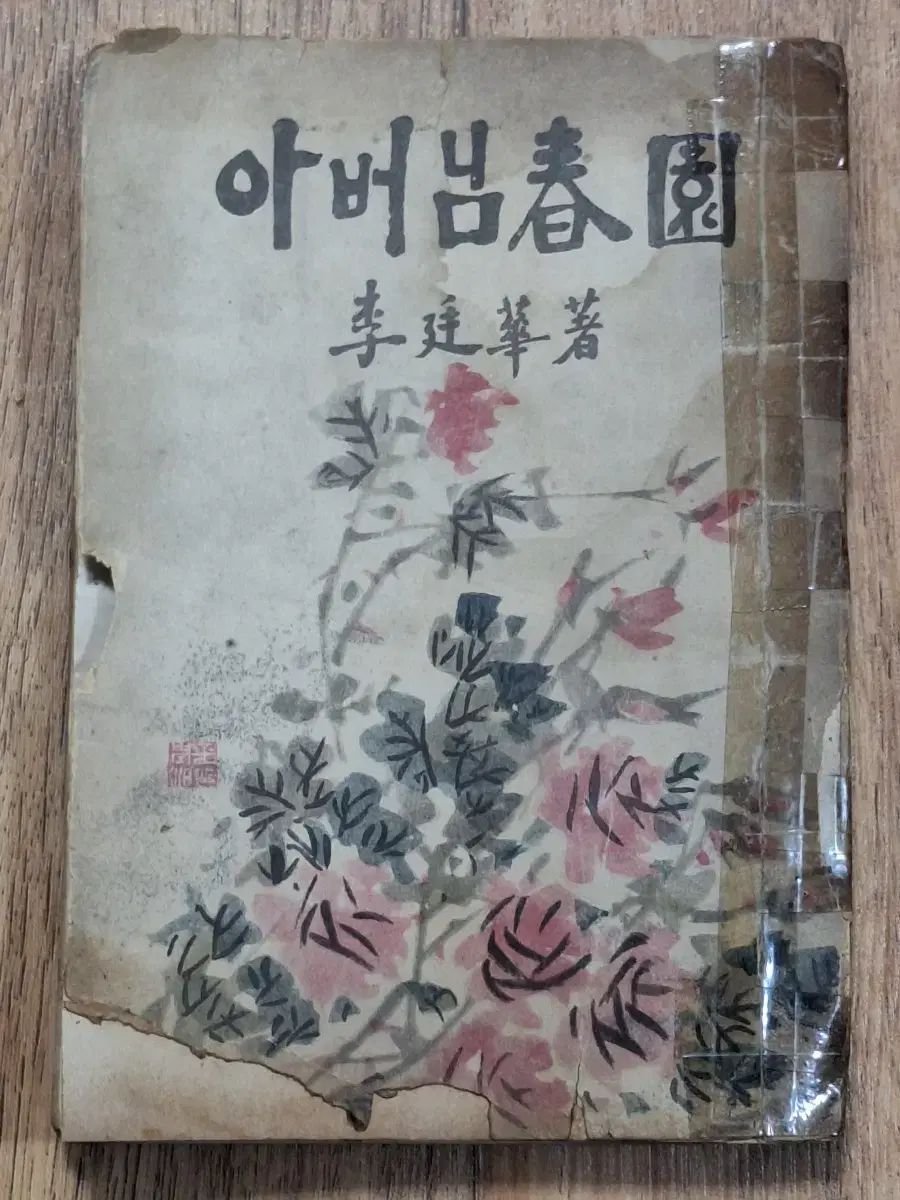 아버님春園
李廷華著